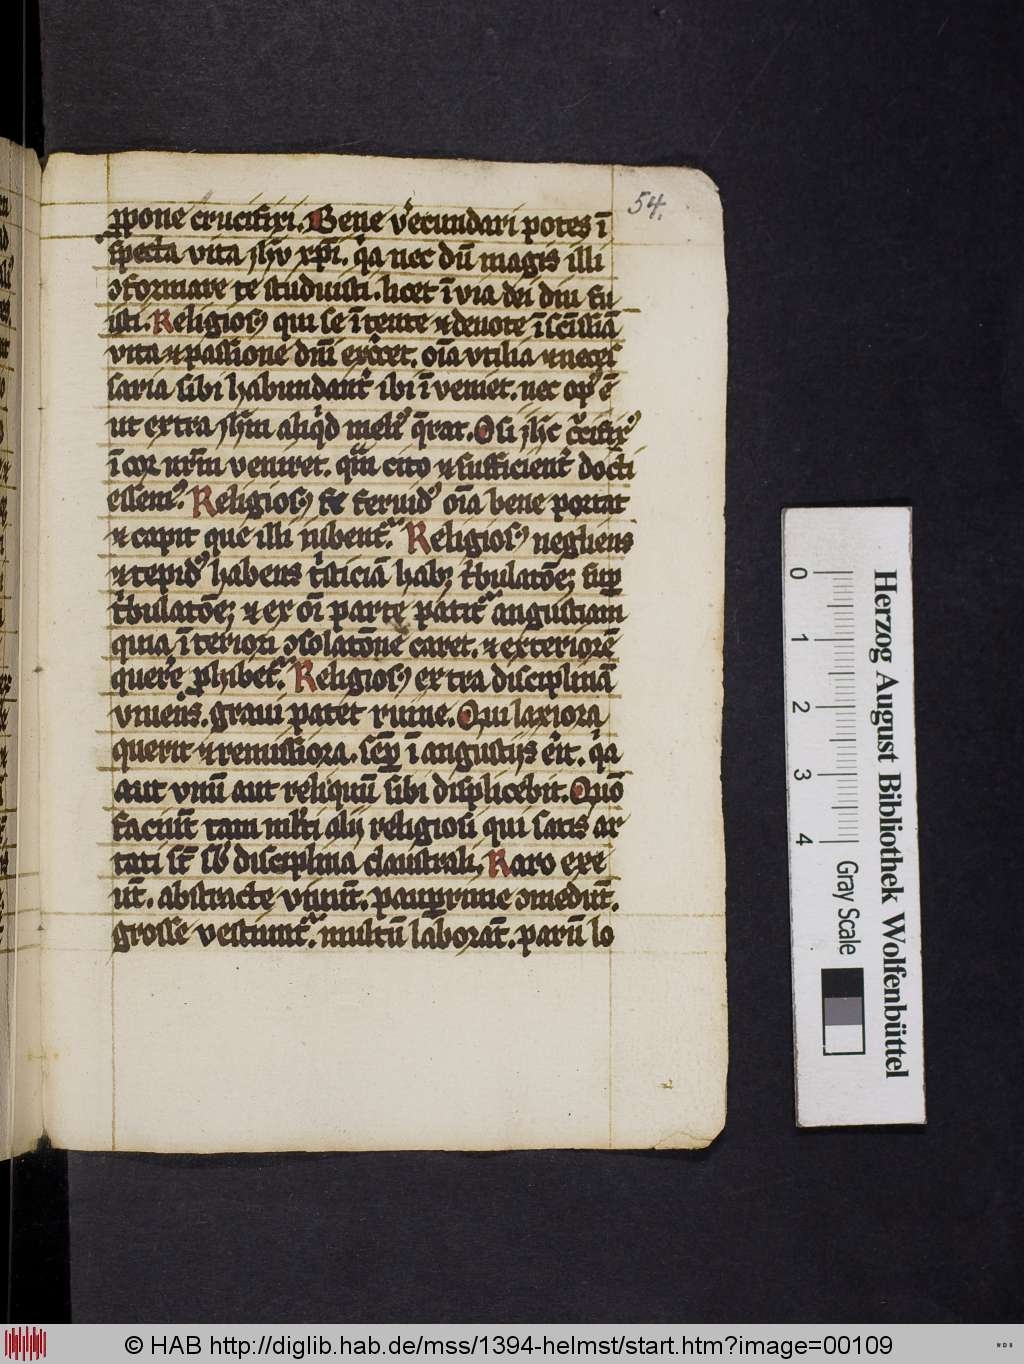 54.
ꝓpone crucifixi. Bene v̾ecundari potes ī
specta vita ih̄u xp̄i. q̾a nec dū magis illi
ↄformare te studuisti. licet ī via dei diu fu
isti. Religiosꝰ qui se ī tente ⁊ deuote ī sc̄issīa
vita ⁊ passione dn̄i exc̾cet. oīa vtilia ⁊ neces
saria sibi habundant̾ ibi īveniet. nec opꝰ ē
ut extra ih̄m aliq̾d meliꝰ q̄rat. O si ih̄c cᷓcifixꝰ
ī cor nr̄m veniret. qᷓm cito ⁊ sufficient̾ docti
essemꝰ. Religiosꝰ feruidꝰ oīa bene portat
⁊ capit que illi iubentᷓ. Religiosꝰ negliens
⁊ tepidꝰ habens t̾sticiā habꝫ t̾bulatōeꝫ suꝑ
t̾bulatōeꝫ ⁊ ex oī parte patitᷓ angustiam
quia īteriori ↄsolatōne caret. ⁊ exteriorē
quere ꝓhibetᷓ. Religiosꝰ extra disciplinā
viuens. graui patet ruine. Qui laxiora
querit ⁊ remissiora. semꝑ ī angustijs e̾it. q̾a
aut vnū aut reliquū sibi displicebit. Quō
faciūt tam ml̾ti alij religiosi qui satis ar
tati st̄ sb̾ disciplina claustrali. Raro exe
ūt. abstracte viuūt. pauꝑrime ↄmedūt.
grosse vestiuntᷓ. multū laborāt. parū lo
Herzog August Bibliothek Wolfenbüttel
0 1 2 3 4 Gray Scale
© HAB http://diglib.hab.de/mss/1394-helmst/start.htm?image=00109